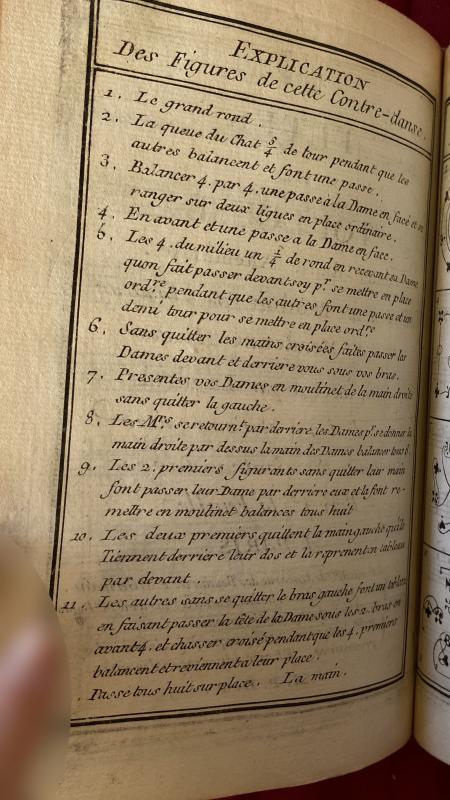 EXPLICATION
Des Figures de cette Contre-danse.
1. Le grand rond.
2. La queue du Chat 5/4 de tour pendant que les
autres balancent et font une passe.
3. Balancer 4. par 4. une passe à la Dame en face et se
ranger sur deux lignes en place ordinaire.
4. En avant et une passe a la Dame en face.
5. Les 4. du milieu un 1/4 de rond en recevant sa Dame
quon fait passer devant soy pr. se mettre en place
ordre. pendant que les autres font une passe et un
demi tour pour se mettre en place ordre
6. Sans quitter les mains croisées faites passer les
Dames devant et derriere vous sous vos bras.
7. Presentes vos Dames en moulinet de la main droite
sans quitter la gauche.
8. Les Mrs. se retournt. par derriere, les Dames pr. se donner la
main droite par dessus la main des Dames balancer tous 8.
9. Les 2. premiers figurants sans quitter leur main
font passer leur Dame par derriere eux et la font re-
mettre en moulinet balances tous huit
10. Les deux premiers quittent la main gauche qu'ils
Tiennent derriere leur dos et la reprenent en tableau
par devant.
11. Les autres sans se quitter le bras gauche font un tableau
en faisant passer la tête de la Dame sous les 2. bras en
avant 4. et chasser croisé pendant que les 4. premiers
balancent et reviennent a leur place.
Passe tous huit sur place. La main.